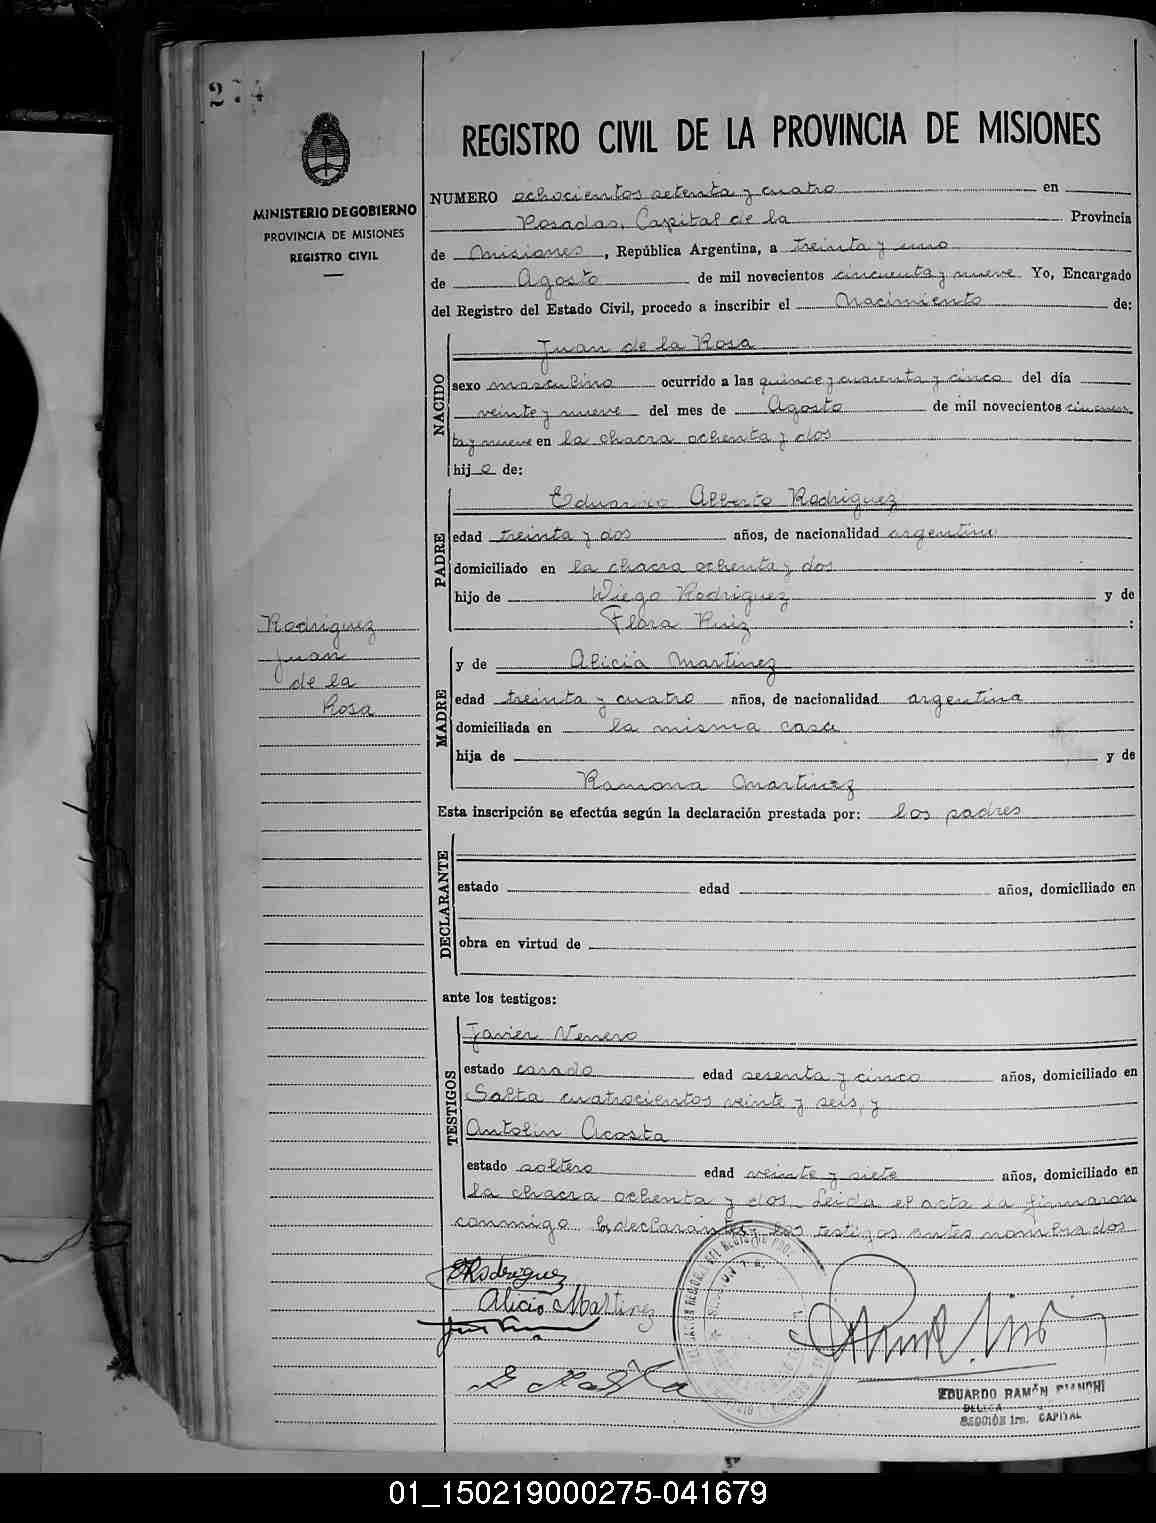 274
REGISTRO CIVIL DE LA PROVINCIA DE MISIONES
MINISTERIO DE GOBIERNO
PROVINCIA DE MISIONES
REGISTRO CIVIL
NUMERO ochocientos setenta y cuatro en
Posadas, Capital de la Provincia
de Misiones, República Argentina, a treinta y uno
de Agosto de mil novecientos cincuenta y nueve Yo, Encargado
del Registro del Estado Civil, procedo a inscribir el Nacimiento de:
NACIDO
Juan de la Rosa
sexo masculino ocurrido a las quince y cuarenta y cinco del día
veinte y nueve del mes de Agosto de mil novecientos cincuen
ta y nueve en la chacra ochenta y dos
hijo de:
PADRE
Eduardo Alberto Rodriguez
edad treinta y dos años, de nacionalidad argentino
domiciliado en la chacra ochenta y dos
hijo de Diego Rodriguez y de
Flora Ruiz :
Rodriguez
Juan
de la
Rosa
MADRE
y de Alicia Martinez
edad treinta y cuatro años, de nacionalidad argentina
domiciliada en la misma casa
hija de y de
Ramona Martinez
Esta inscripción se efectúa según la declaración prestada por: los padres
DECLARANTE
estado edad años, domiciliado en
obra en virtud de
ante los testigos:
TESTIGOS
Javier Venero
estado casado edad sesenta y cinco años, domiciliado en
Salta cuatrocientos veinte y seis, y
Antolin Acosta
estado soltero edad veinte y siete años, domiciliado en
la chacra ochenta y dos. Leida el acta la firmaron
conmigo los declarantes y los testigos antes nombrados
ERodriguez
Alicia Martinez
EDUARDO RAMÓN BIANCHI
REGIÓN 1ra. CAPITAL
01_150219000275-041679